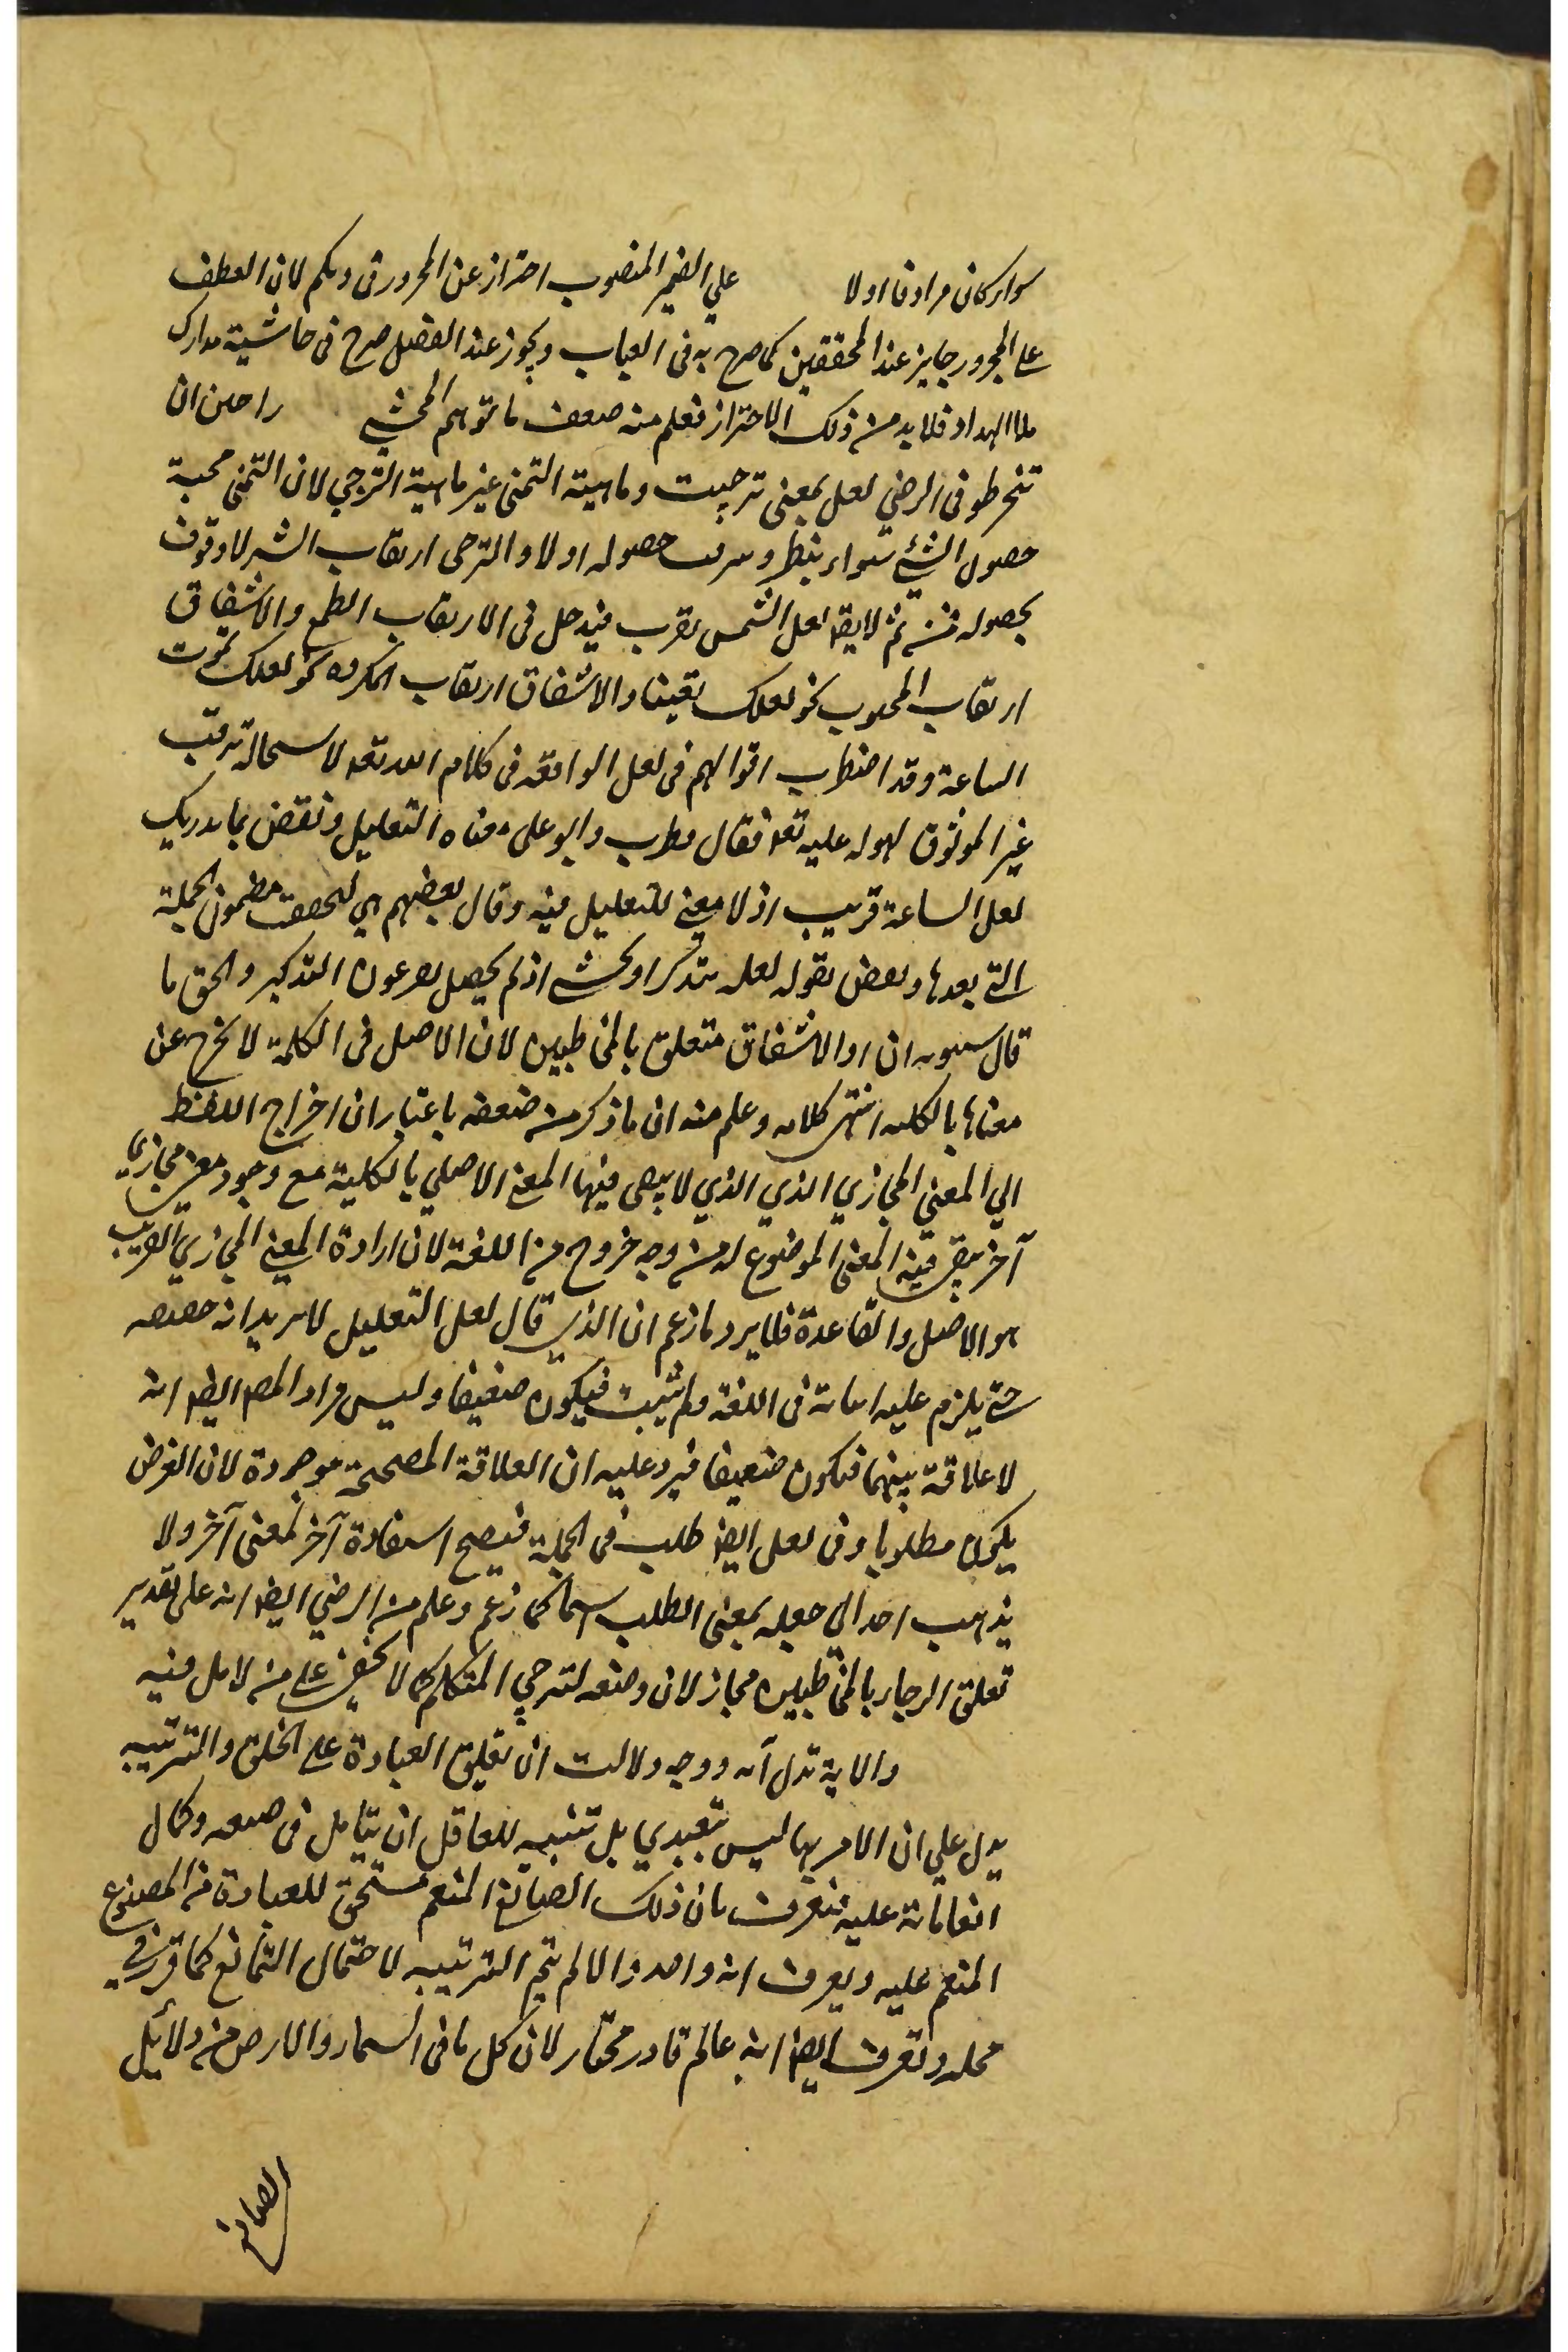 سواء كان مرادفا اولا علي الضمير المنصوب احتراز عن المجرور في وبكم لان العطف
على المجرور جايز عند المحققين كما صرح به في العباب ويجوز عند الفصل صرح في حاشية مدارك
ملا الهداد فلا بد من ذلك الاحتراز فعلم منه ضعف ما توهم المحشي راجين ان
تنخرطو في الرضي لعل بمعنى ترجيت وماهية التمني غير ماهية الترجي لان التمني محبة
حصول الشئ سواء ينتظر وسرقب حصوله اولا والترجى ارتقاب الشئ لا وثوق
بحصوله فمن ثم لا يقه لعل الشمس تغرب فيدخل فى الارتقاب الطمع والاشفاق
ارتقاب المحبوب نحو لعلك تعيننا والاشفاق ارتقاب المكروه نحو لعلك تموت
الساعة وقد اضطرب اقوالهم فى لعل الواقعة فى كلام الله تعه لاستحالة ترقب
غير الموثوق لهوله عليه تعه فقال قطرب وابو على معناه التعليل ونقض بما يدريك
لعل الساعة قريب اذ لا معنى للتعليل فيه وقال بعضهم هي لتحقق مضمون الجملة
التي بعدها ونقض بقوله لعله يتذكر او يخشى اذ لم يحصل لفرعون التذكير والحق ما
قال سيبويه ان او الاشفاق متعلق بالمخاطبين لان الاصل فى الكلمة لا تخرج عن
معناها بالكليه انتهى كلامه وعلم منه ان ما ذكر من ضعفه باعتبار ان اخراج اللفظ
الي المعنى المجازي الذي الذي لا يبقى فيها المعنى الاصلي بالكلية مع وجود معنى مجازي
آخر يبقى فيه المعنى الموضوع له من وجه خروج من اللغة لان ارادة المعنى المجازي القريب
هو الاصل والقاعدة فلا يرد ما زعم ان الذي قال لعل التعليل لا يريد انه حقيقه
حتى يلزم عليه اثباته فى اللغة ولم يثبت فيكون ضعيفا وليس مراد المصه ايضه انه
لا علاقة بينهما فيكون ضعيفا فيرد عليه ان العلاقة المصححة موجودة لان الغرض
يكون مطلوبا وفى لعل ايضه طلب فى الجملة فيصح استعارة آخر لمعنى آخر ولا
يذهب احد الى جعله بمعنى الطلب اسما كما زعم وعلم من الرضي ايضه انه على تقدير
تعلق الرجاء بالمخاطبين مجاز لان وضعه لترجي المتكلم كما لا يخفى على من تامل فيه
والاية تدل آه ووجه دلالت ان تعليق العبادة على الخلق والتربيه
يدل علي ان الامر بها ليس تعبدي بل تنبيه للعاقل ان يتامل فى صنعه وكمال
انعاماته عليه فيعرف بان ذلك الصانع المنعم مستحق للعبادة من المصنوع
المنعم عليه ويعرف انه واحد والا لم يتم التربيه لاحتمال التمانع كما قرر في
محله ويعرف ايضه انه عالم قادر مختار لان كل ما فى السماء والارض من دلائل
الصانع